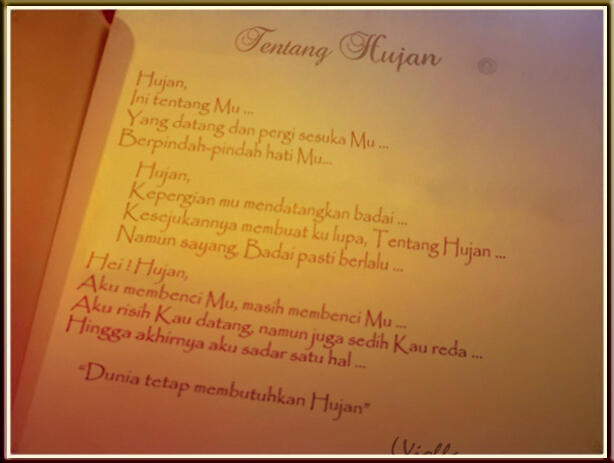 Tentang Hujan
Hujan,
Ini tentang Mu ...
Yang datang dan pergi sesuka Mu ...
Berpindah-pindah hati Mu...
Hujan,
Kepergian mu mendatangkan badai ...
Kesejukannya membuat ku lupa, Tentang Hujan ...
Namun sayang, Badai pasti berlalu ...
Hei ! Hujan,
Aku membenci Mu, masih membenci Mu ...
Aku risih Kau datang, namun juga sedih Kau reda ...
Hingga akhirnya aku sadar satu hal ...
“Dunia tetap membutuhkan Hujan”